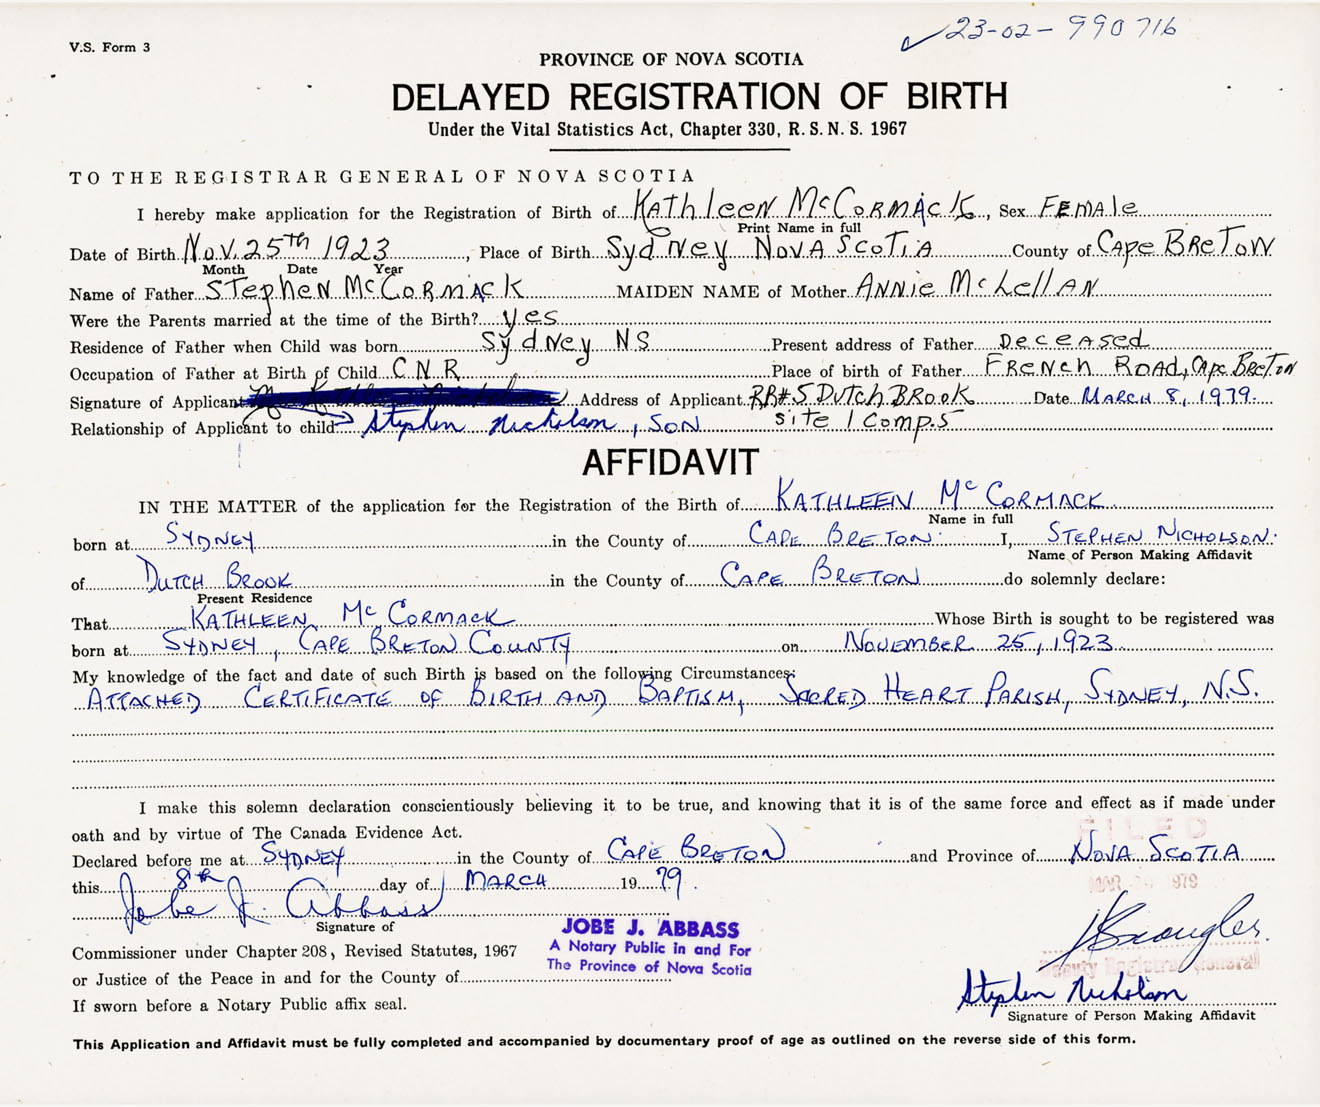 23-02-990716
V.S. Form 3
PROVINCE OF NOVA SCOTIA
DELAYED REGISTRATION OF BIRTH
Under the Vital Statistics Act, Chapter 330, R.S.N.S. 1967
TO THE REGISTRAR GENERAL OF NOVA SCOTIA
I hereby make application for the Registration of Birth of Kathleen McCormack, Sex Female
Print Name in full
Date of Birth Nov. 25th 1923, Place of Birth Sydney Nova Scotia County of Cape Breton
Month Date Year
Name of Father Stephen McCormack MAIDEN NAME of Mother Annie McLellan
Were the Parents married at the time of the Birth? yes
Residence of Father when Child was born Sydney NS Present address of Father Deceased
Occupation of Father at Birth of Child C.N.R. Place of birth of Father French Road, Cape Breton
Signature of Applicant Address of Applicant RR#5 Dutch Brook Date March 8, 1979.
Relationship of Applicant to child Stephen Nicholson, Son Site 1 Comp. 5
AFFIDAVIT
IN THE MATTER of the application for the Registration of the Birth of Kathleen McCormack
Name in full
born at Sydney in the County of Cape Breton I, Stephen Nicholson.
Name of Person Making Affidavit
of Dutch Brook in the County of Cape Breton do solemnly declare:
Present Residence
That Kathleen McCormack Whose Birth is sought to be registered was
born at Sydney, Cape Breton County on November 25, 1923
My knowledge of the fact and date of such Birth is based on the following Circumstances:
Attached Certificate of Birth and Baptism, Sacred Heart Parish, Sydney, N.S.
I make this solemn declaration conscientiously believing it to be true, and knowing that it is of the same force and effect as if made under
oath and by virtue of The Canada Evidence Act.
FILED
Declared before me at Sydney in the County of Cape Breton and Province of Nova Scotia
this 8th day of March 1979.
MAR 1979
Jobe J. Abbass
Signature of
JOBE J. ABBASS
A Notary Public in and For
The Province of Nova Scotia
Commissioner under Chapter 208, Revised Statutes, 1967
or Justice of the Peace in and for the County of
Deputy Registrar General
If sworn before a Notary Public affix seal.
Stephen Nicholson
Signature of Person Making Affidavit
This Application and Affidavit must be fully completed and accompanied by documentary proof of age as outlined on the reverse side of this form.